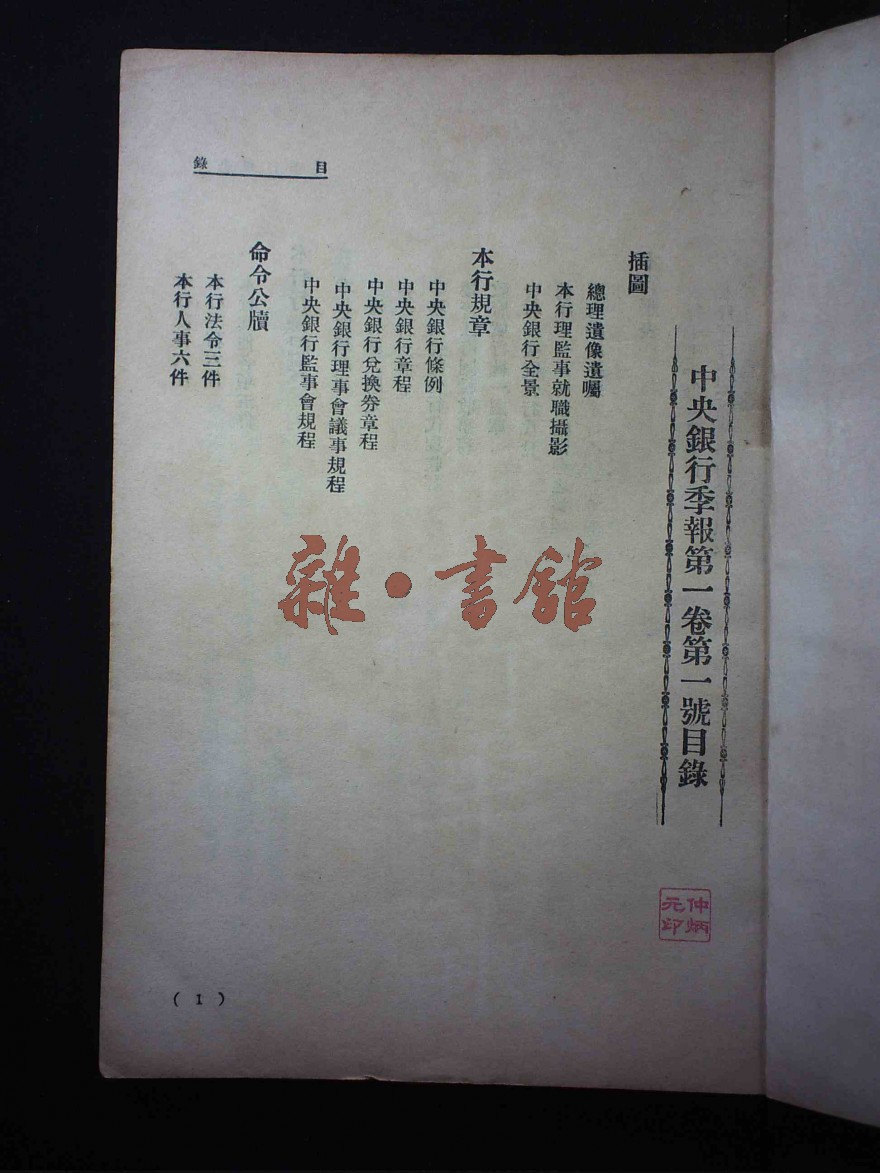 中央銀行季報第一卷第一號目錄
插圖
總理遺像遺囑
本行理監事就職攝影
中央銀行全景
本行規章
中央銀行條例
中央銀行章程
中央銀行兌換券章程
中央銀行理事會議事規程
中央銀行監事會規程
命令公牘
本行法令三件
本行人事六件
目錄
( I )
仲炳
元印
雜·書館